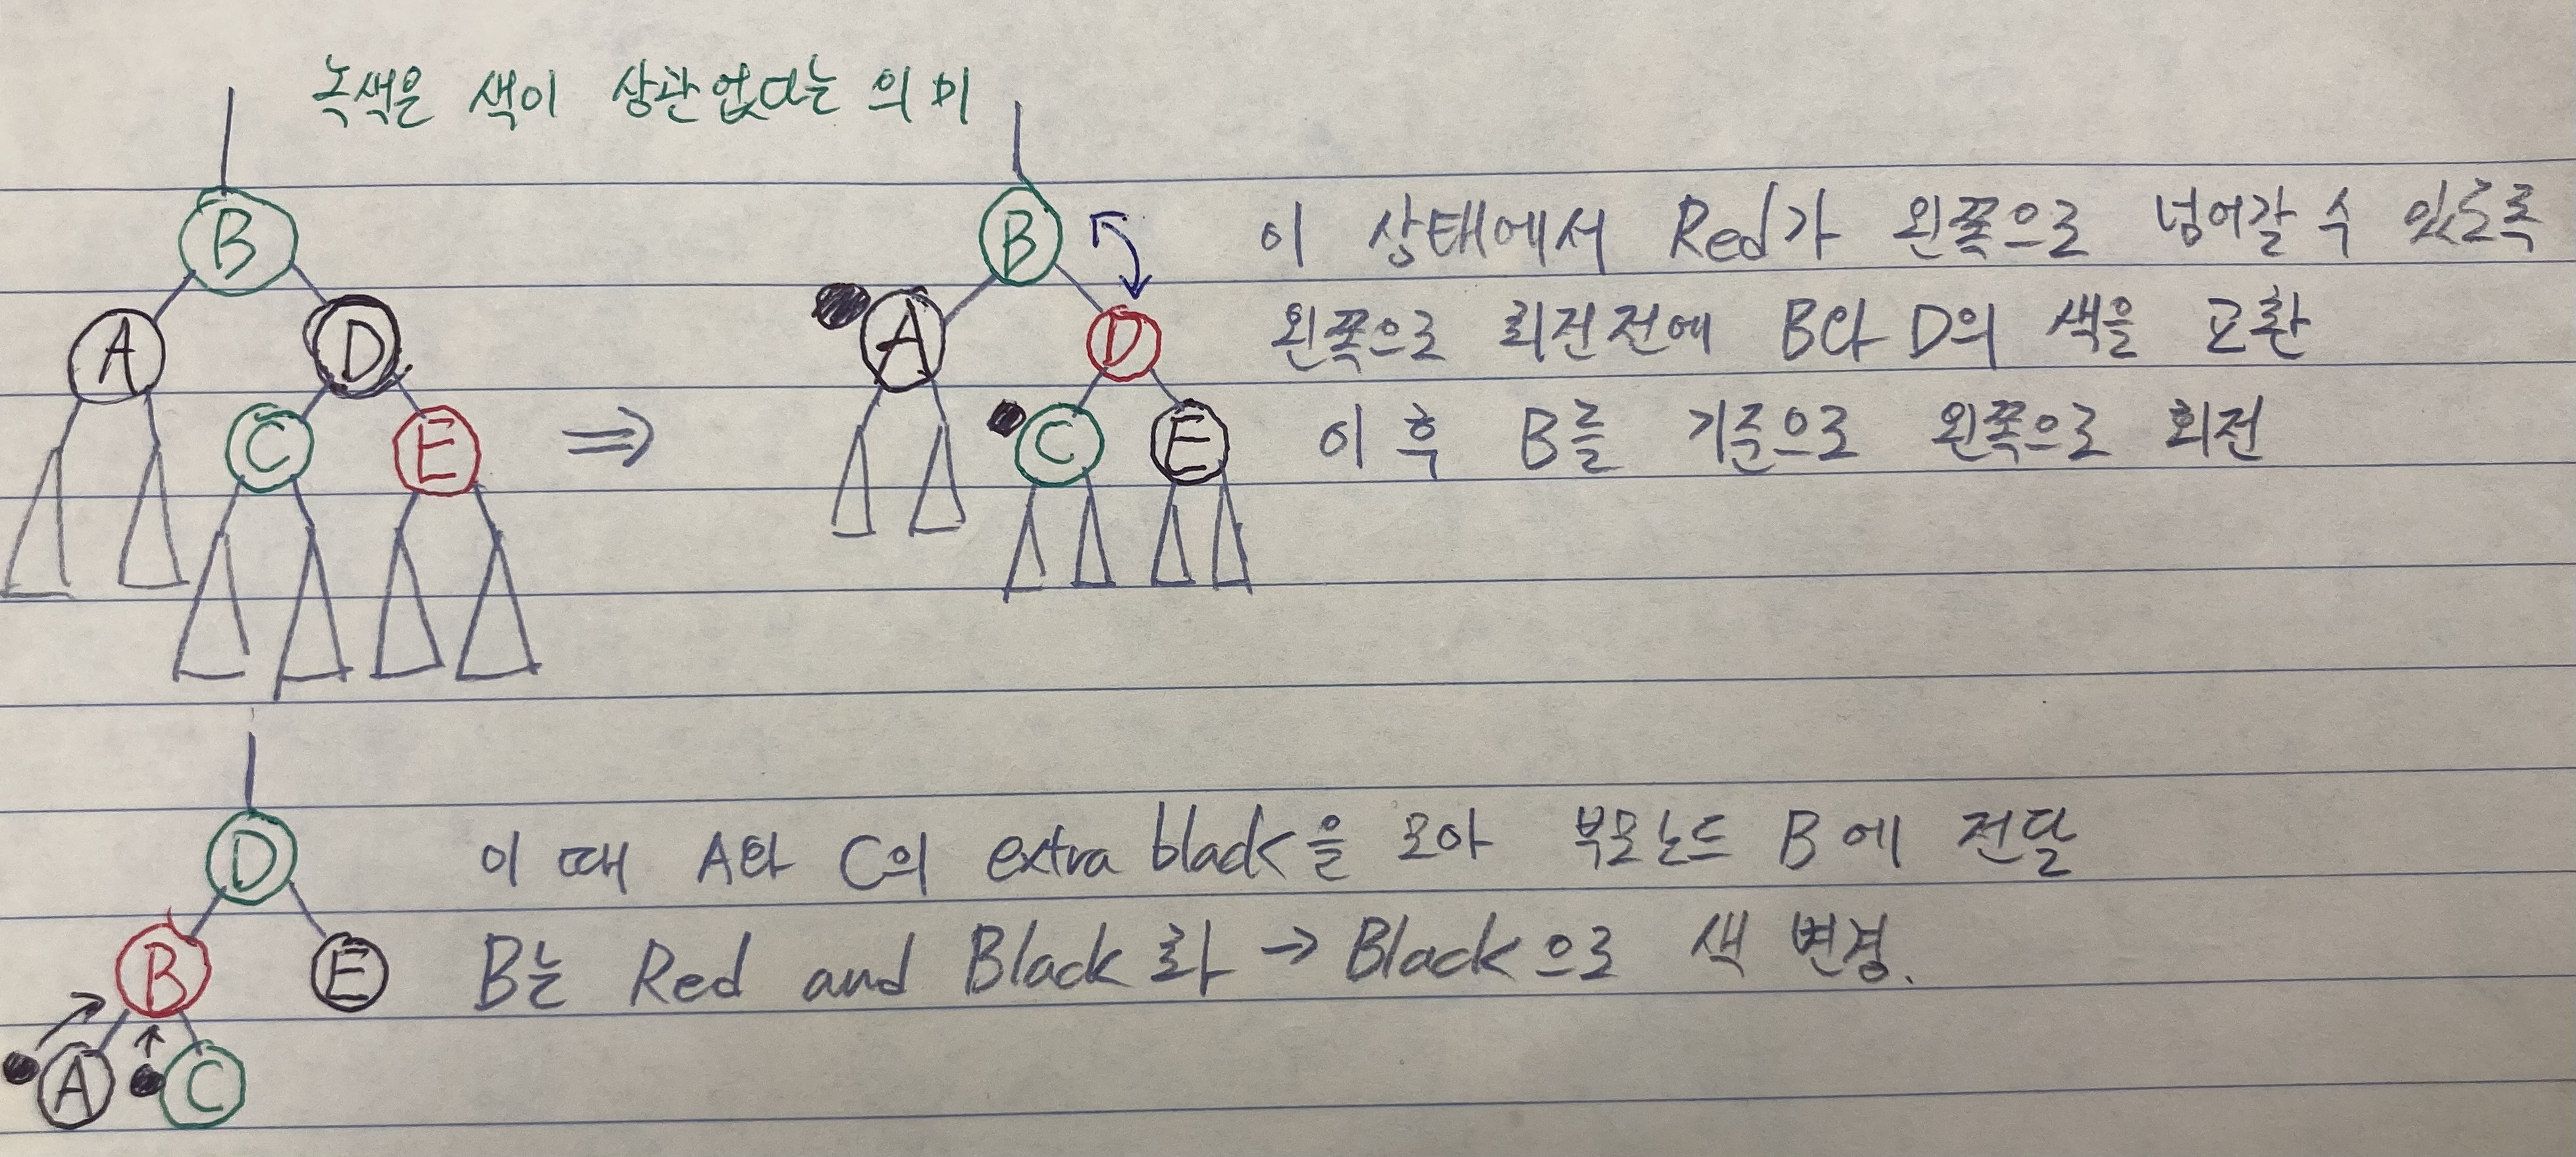 녹색은 색이 상관없다는 의미
B
A D
C E
B
A D
C E
이 상태에서 Red가 왼쪽으로 넘어갈 수 있도록
왼쪽으로 회전전에 B와 D의 색을 교환
이후 B를 기준으로 왼쪽으로 회전
D
B E
A C
이 때 A와 C의 extra black을 모아 부모노드 B에 전달
B는 Red and Black 화 → Black으로 색 변경.